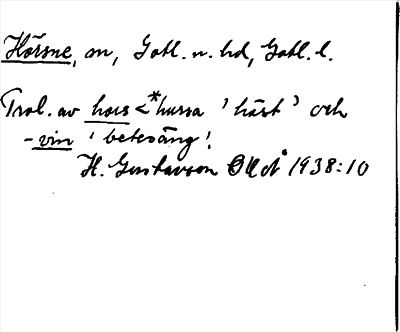 Hörsne, sn, Gotl. n. hd, Gotl. l.
Trol. av hors < *hursa 'häst' och
-vin 'betesäng'.
H. Gustavson OUÅ 1938:10